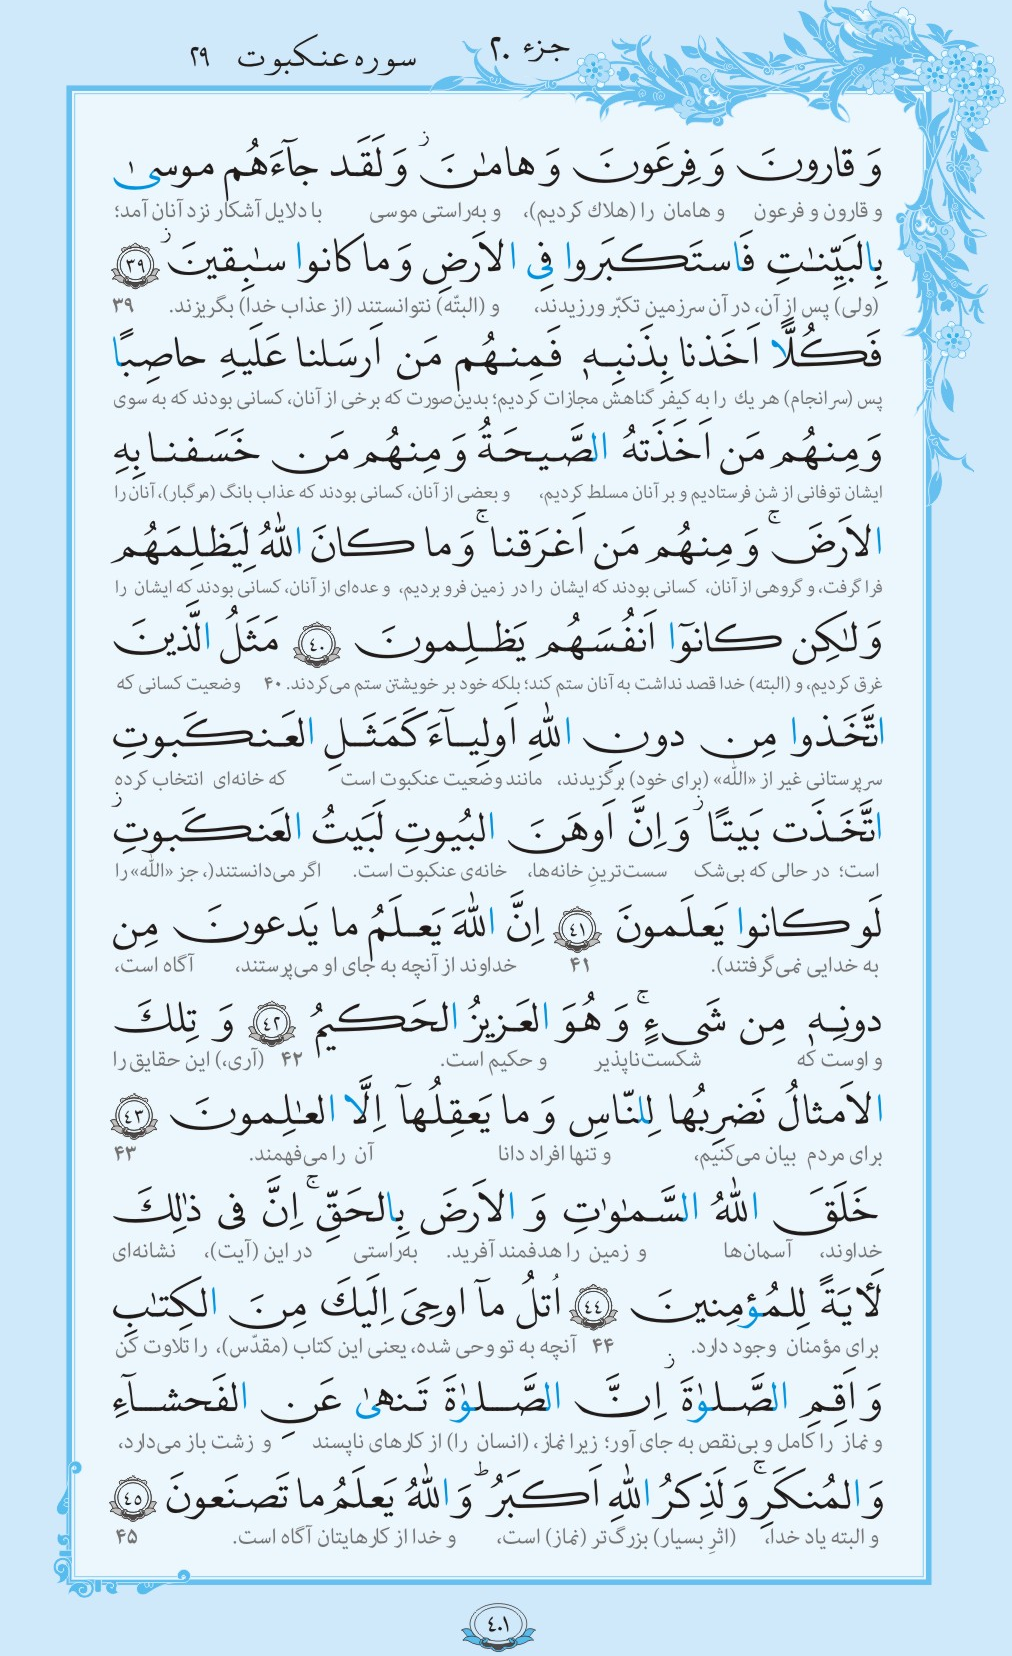 جزء ۲۰
سوره عنکبوت ۲۹
وَ قارونَ وَ فِرعَونَ وَ هامٰنَ ز وَ لَقَد جآءَهُم موسىٰ
و قارون و فرعون و هامان را (هلاک کردیم)، و به‌راستی موسی با دلایل آشکار نزد آنان آمد؛
بِالبَيِّنٰتِ فَاستَكبَروا فِى الاَرضِ وَ ما كانوا سٰبِقينَ ز ٣٩
(ولی) پس از آن، در آن سرزمین تکبّر ورزیدند، و (البتّه) نتوانستند (از عذاب خدا) بگریزند. ۳۹
فَكُلًّا اَخَذنا بِذَنبِهٖ فَمِنهُم مَن اَرسَلنا عَلَيهِ حاصِبًا
پس (سرانجام) هر یك را به کیفر گناهش مجازات کردیم؛ بدین‌صورت که برخی از آنان، کسانی بودند که به سوی
وَ مِنهُم مَن اَخَذَتهُ الصَّيحَةُ وَ مِنهُم مَن خَسَفنا بِهِ
ایشان توفانی از شن فرستادیم و بر آنان مسلط کردیم، و بعضی از آنان، کسانی بودند که عذاب بانگ (مرگبار)، آنان را
الاَرضَ ج وَ مِنهُم مَن اَغرَقنا ج وَ ما كانَ اللّٰهُ لِيَظلِمَهُم
فرا گرفت، و گروهی از آنان، کسانی بودند که ایشان را در زمین فرو بردیم، و عده‌ای از آنان، کسانی بودند که ایشان را
وَ لٰكِن كانوٓا اَنفُسَهُم يَظلِمونَ ٤٠ مَثَلُ الَّذينَ
غرق کردیم، و (البته) خدا قصد نداشت به آنان ستم کند؛ بلکه خود بر خویشتن ستم می‌کردند. ۴۰ وضعیت کسانی که
اتَّخَذوا مِن دونِ اللّٰهِ اَولِيآءَ كَمَثَلِ العَنكَبوتِ
سرپرستانی غیر از «اللّه» (برای خود) برگزیدند، مانند وضعیت عنکبوت است که خانه‌ای انتخاب کرده
اتَّخَذَت بَيتًا ز وَ اِنَّ اَوهَنَ البُيوتِ لَبَيتُ العَنكَبوتِ ز
است؛ در حالی که بی‌شک سست‌ترینِ خانه‌ها، خانه‌ی عنکبوت است. اگر می‌دانستند(، جز «اللّه» را
لَو كانوا يَعلَمونَ ٤١ اِنَّ اللّٰهَ يَعلَمُ ما يَدعونَ مِن
به خدایی نمی‌گرفتند). ۴۱ خداوند از آنچه به جای او می‌پرستند، آگاه است،
دونِهٖ مِن شَىءٍ ج وَ هُوَ العَزيزُ الحَكيمُ ٤٢ وَ تِلكَ
و اوست که شکست‌ناپذیر و حکیم است. ۴۲ (آری،) این حقایق را
الاَمثالُ نَضرِبُها لِلنّاسِ وَ ما يَعقِلُهآ اِلَّا العٰلِمونَ ٤٣
برای مردم بیان می‌کنیم، و تنها افراد دانا آن را می‌فهمند. ۴۳
خَلَقَ اللّٰهُ السَّمٰوٰتِ وَ الاَرضَ بِالحَقِّ ج اِنَّ فى ذٰلِكَ
خداوند، آسمان‌ها و زمین را هدفمند آفرید. به‌راستی در این (آیت)، نشانه‌ای
لَأٓيَةً لِلمُؤمِنينَ ٤٤ اُتلُ مآ اوحِىَ اِلَيكَ مِنَ الكِتٰبِ
برای مؤمنان وجود دارد. ۴۴ آنچه به تو وحی شده، یعنی این کتاب (مقدّس)، را تلاوت کن
وَ اَقِمِ الصَّلوٰةَ ز اِنَّ الصَّلوٰةَ تَنهىٰ عَنِ الفَحشآءِ
و نماز را کامل و بی‌نقص به جای آور؛ زیرا نماز، (انسان را) از کارهای ناپسند و زشت باز می‌دارد،
وَ المُنكَرِ ج وَ لَذِكرُ اللّٰهِ اَكبَرُ ط وَ اللّٰهُ يَعلَمُ ما تَصنَعونَ ٤٥
و البته یاد خدا، (اثرِ بسیار) بزرگ‌تر (نماز) است، و خدا از کارهایتان آگاه است. ۴۵
٤٠١